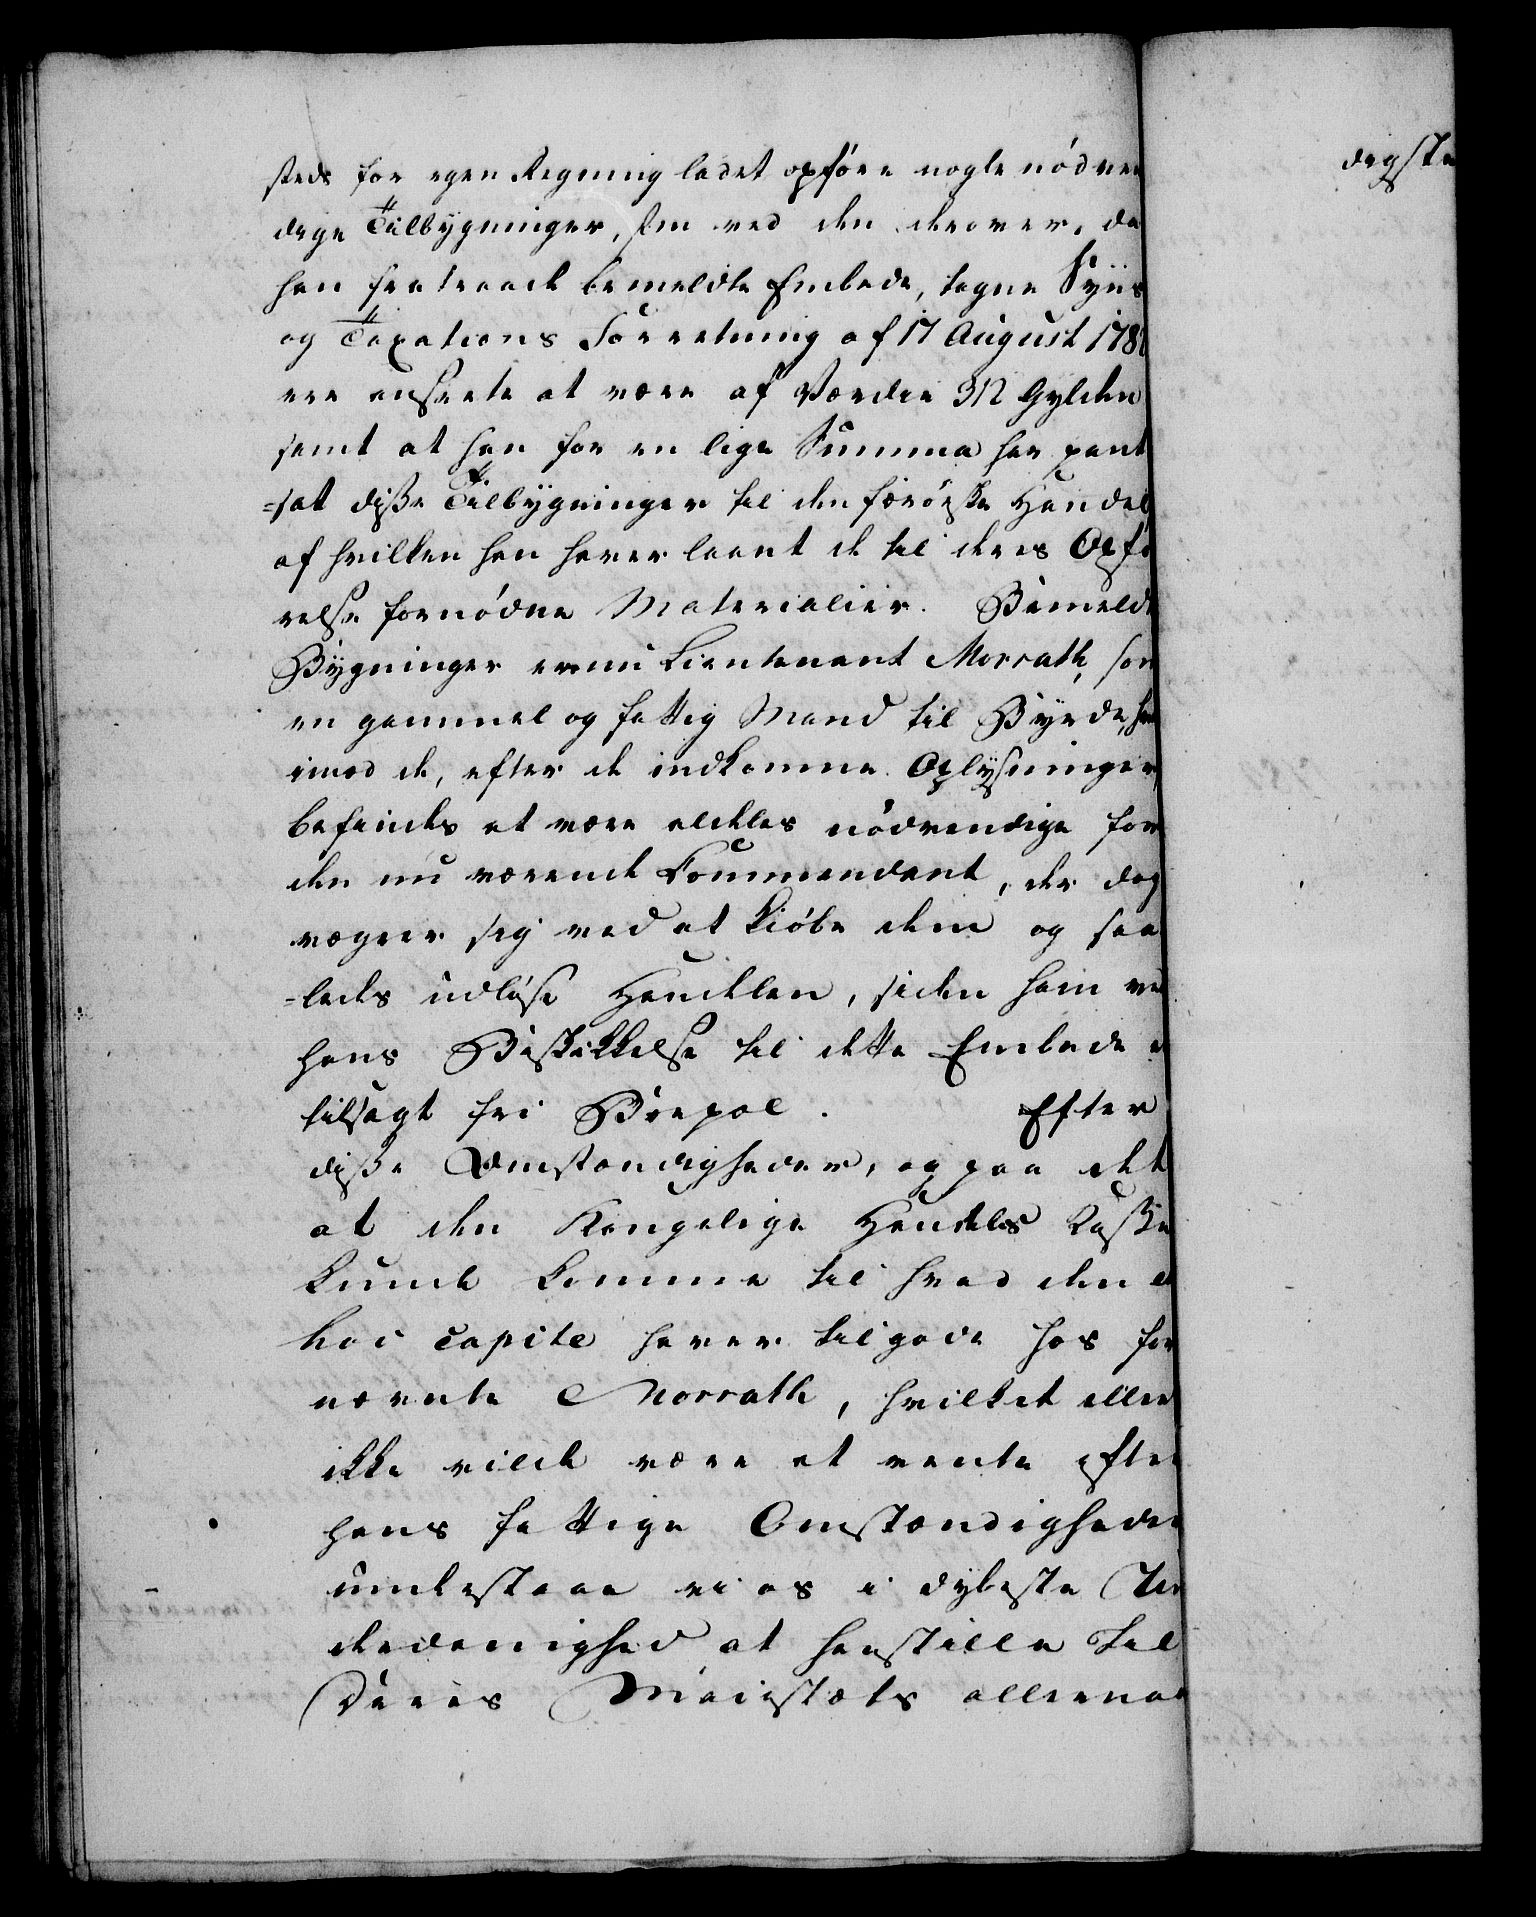 steds for egen Regning ladet opföre nogle nödven
dige Tilbygninger, som ved den derover, da
han fratraade bemeldte Embede, tagne Syns
og Taxations Forretning af 17 August 178
ere ansete at være af Værdie 312 Gylden
samt at han for en lige Summa har pant
=sat disse Tilbygninger til den færöiske Handel
af hvilken han haver laant de til deres Opfö
relse fornödne Materialier. Bemeldt
Bygninger ere nu Lieutenant Morrath, som
en gammel og fattig Mand til Byrde, her
imod de, efter de indkomne Oplysninger,
befindes at være aldeles nödvendige for
den nu værende Commendant, der dog
vægrer sig ved at kiöbe dem og saa
=ledes udlöse Handelen, siden ham ved
hans Beskikkelse til dette Embede er
tilsagt fri Boepæl. Efter
disse Omstændigheder, og paa det
at den Kongelige Handels Kasse
kunde komme til hvad den ex
hoc capite haver tilgode hos for
nævnte Morrath, hvilket ellers
ikke vilde være at vente efter
hans fattige Omstændigheder
understaae vi os i dybeste Un
derdanighed at henstille til
Deres Majestæts allernaa
digste